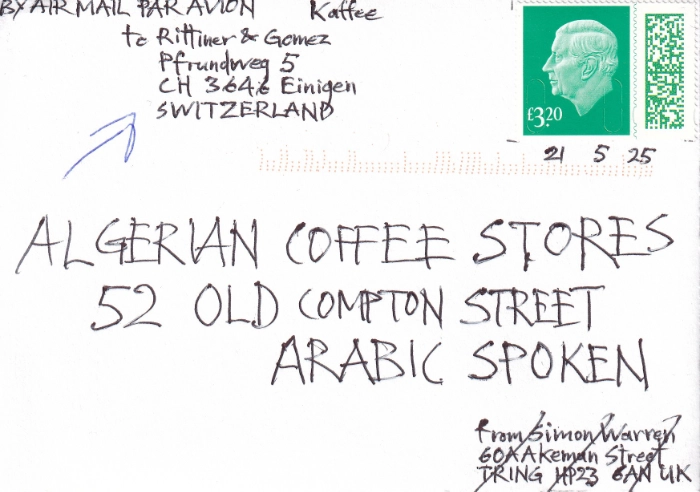 BY AIR MAIL PAR AVION Kaffee
to Rittiner & Gomez
Pfrundweg 5
CH 3646 Einigen
SWITZERLAND
£3.20
21 5 25
ALGERIAN COFFEE STORES
52 OLD COMPTON STREET
ARABIC SPOKEN
From Simon Warren
60A Akeman Street
TRING HP23 6AN UK